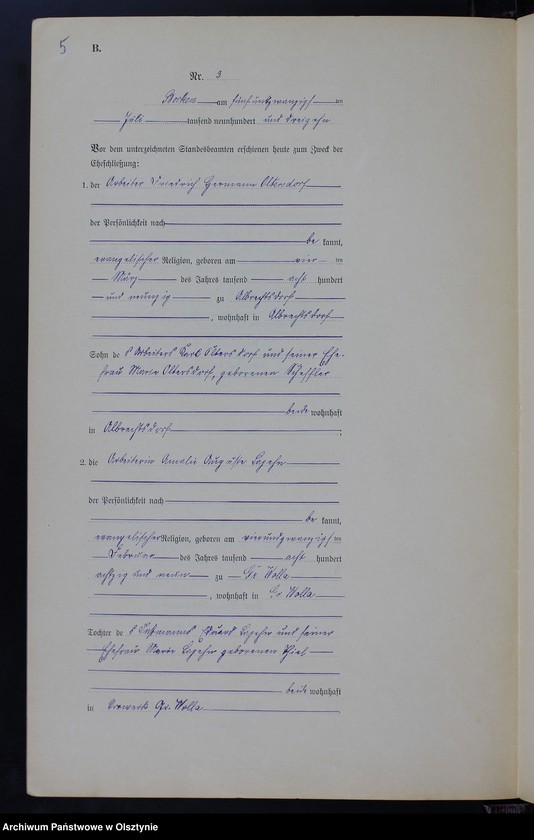 5 B.
Nr. 3
Borken am fünfundzwanzigsten
Juli tausend neunhundert und dreizehn
Vor dem unterzeichneten Standesbeamten erschienen heute zum Zweck der
Eheschließung:
1. der Arbeiter Friedrich Hermann Oltersdorf
der Persönlichkeit nach
be kannt,
evangelischer Religion, geboren am vier ten
März des Jahres tausend acht hundert
und neunzig zu Albrechtsdorf
, wohnhaft in Albrechtsdorf
Sohn de s Arbeiters Karl Oltersdorf und seiner Ehe-
frau Maria Oltersdorf, geborenen Scheffler
beide wohnhaft
in Albrechtsdorf ;
2. die Arbeiterin Amalie Auguste Lapehn
der Persönlichkeit nach
be kannt,
evangelischer Religion, geboren am vierundzwanzigsten
Februar des Jahres tausend acht hundert
achtzig und neun zu Gr. Wolla
, wohnhaft in Gr. Wolla
Tochter de s Eduard Lapehn und seiner
Ehefrau Maria Lapehn geborenen Thiel
beide wohnhaft
in Vorwerk Gr. Wolla
Archiwum Państwowe w Olsztynie